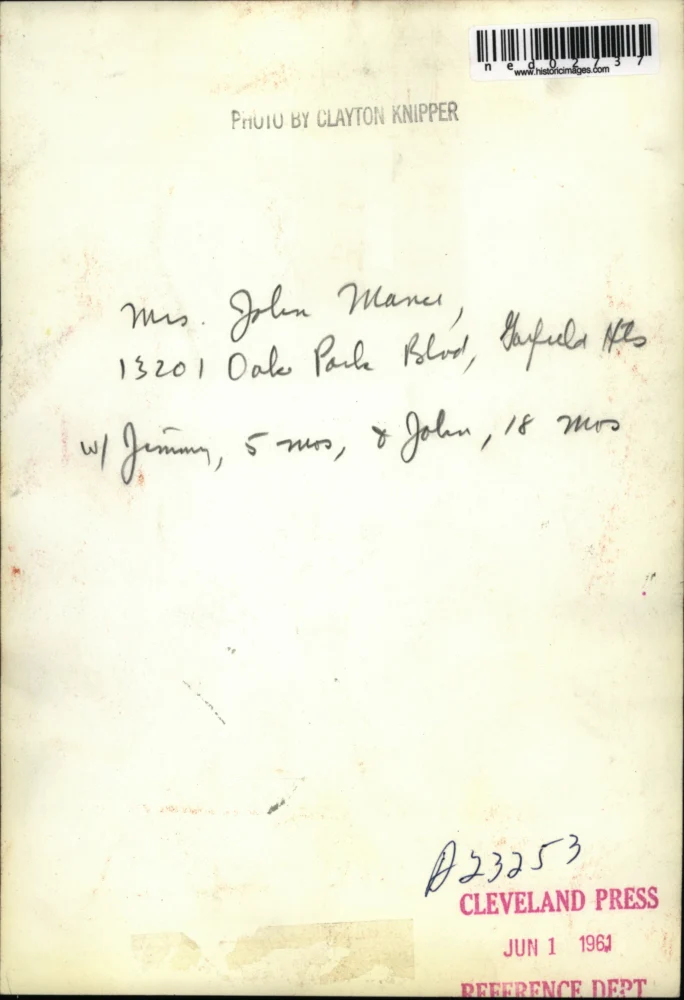 ned02737
www.historicimages.com
PHOTO BY CLAYTON KNIPPER
Mrs. John Mance,
13201 Oak Park Blvd, Garfield Hts
w/ Jimmy, 5 mos, & John, 18 mos
A23253
CLEVELAND PRESS
JUN 1 1961
REFERENCE DEPT